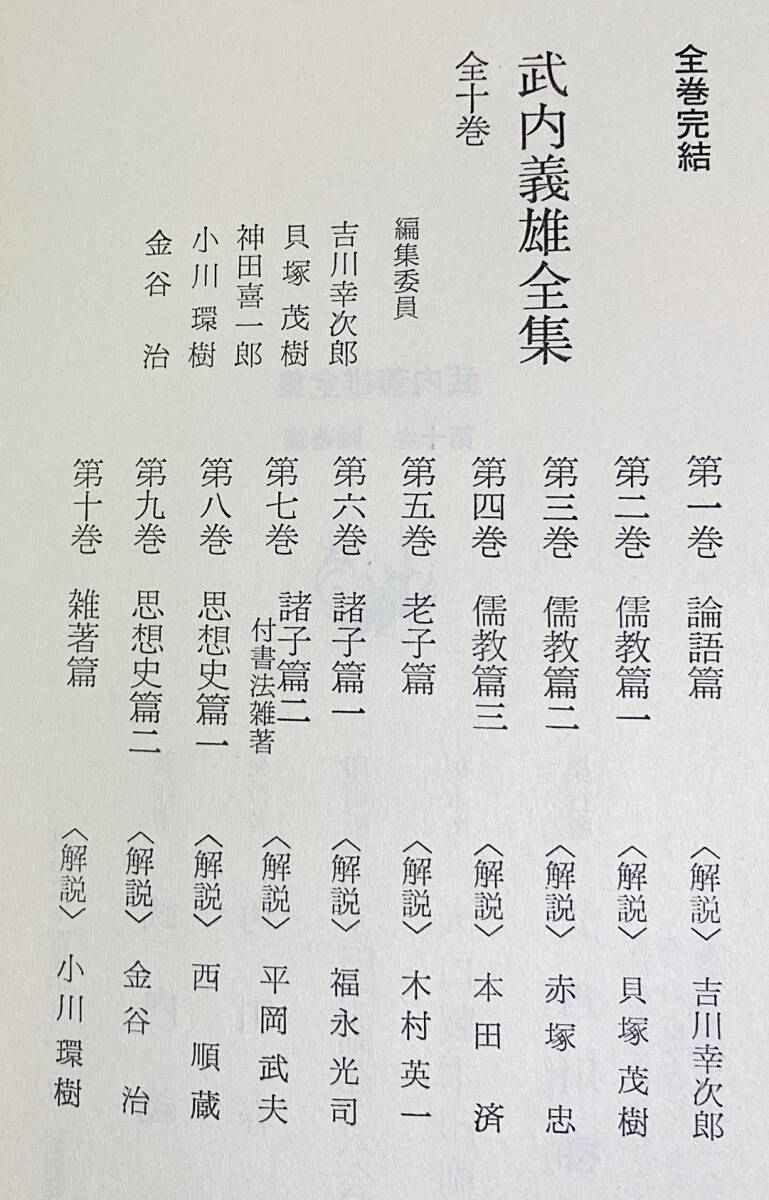 全巻完結
武内義雄全集
全十巻
編集委員
吉川幸次郎
貝塚茂樹
神田喜一郎
小川環樹
金谷治
第一巻 論語篇 〈解説〉 吉川幸次郎
第二巻 儒教篇一 〈解説〉 貝塚茂樹
第三巻 儒教篇二 〈解説〉 赤塚忠
第四巻 儒教篇三 〈解説〉 本田済
第五巻 老子篇 〈解説〉 木村英一
第六巻 諸子篇一 〈解説〉 福永光司
第七巻 諸子篇二 付書法雑著 〈解説〉 平岡武夫
第八巻 思想史篇一 〈解説〉 西順蔵
第九巻 思想史篇二 〈解説〉 金谷治
第十巻 雑著篇 〈解説〉 小川環樹